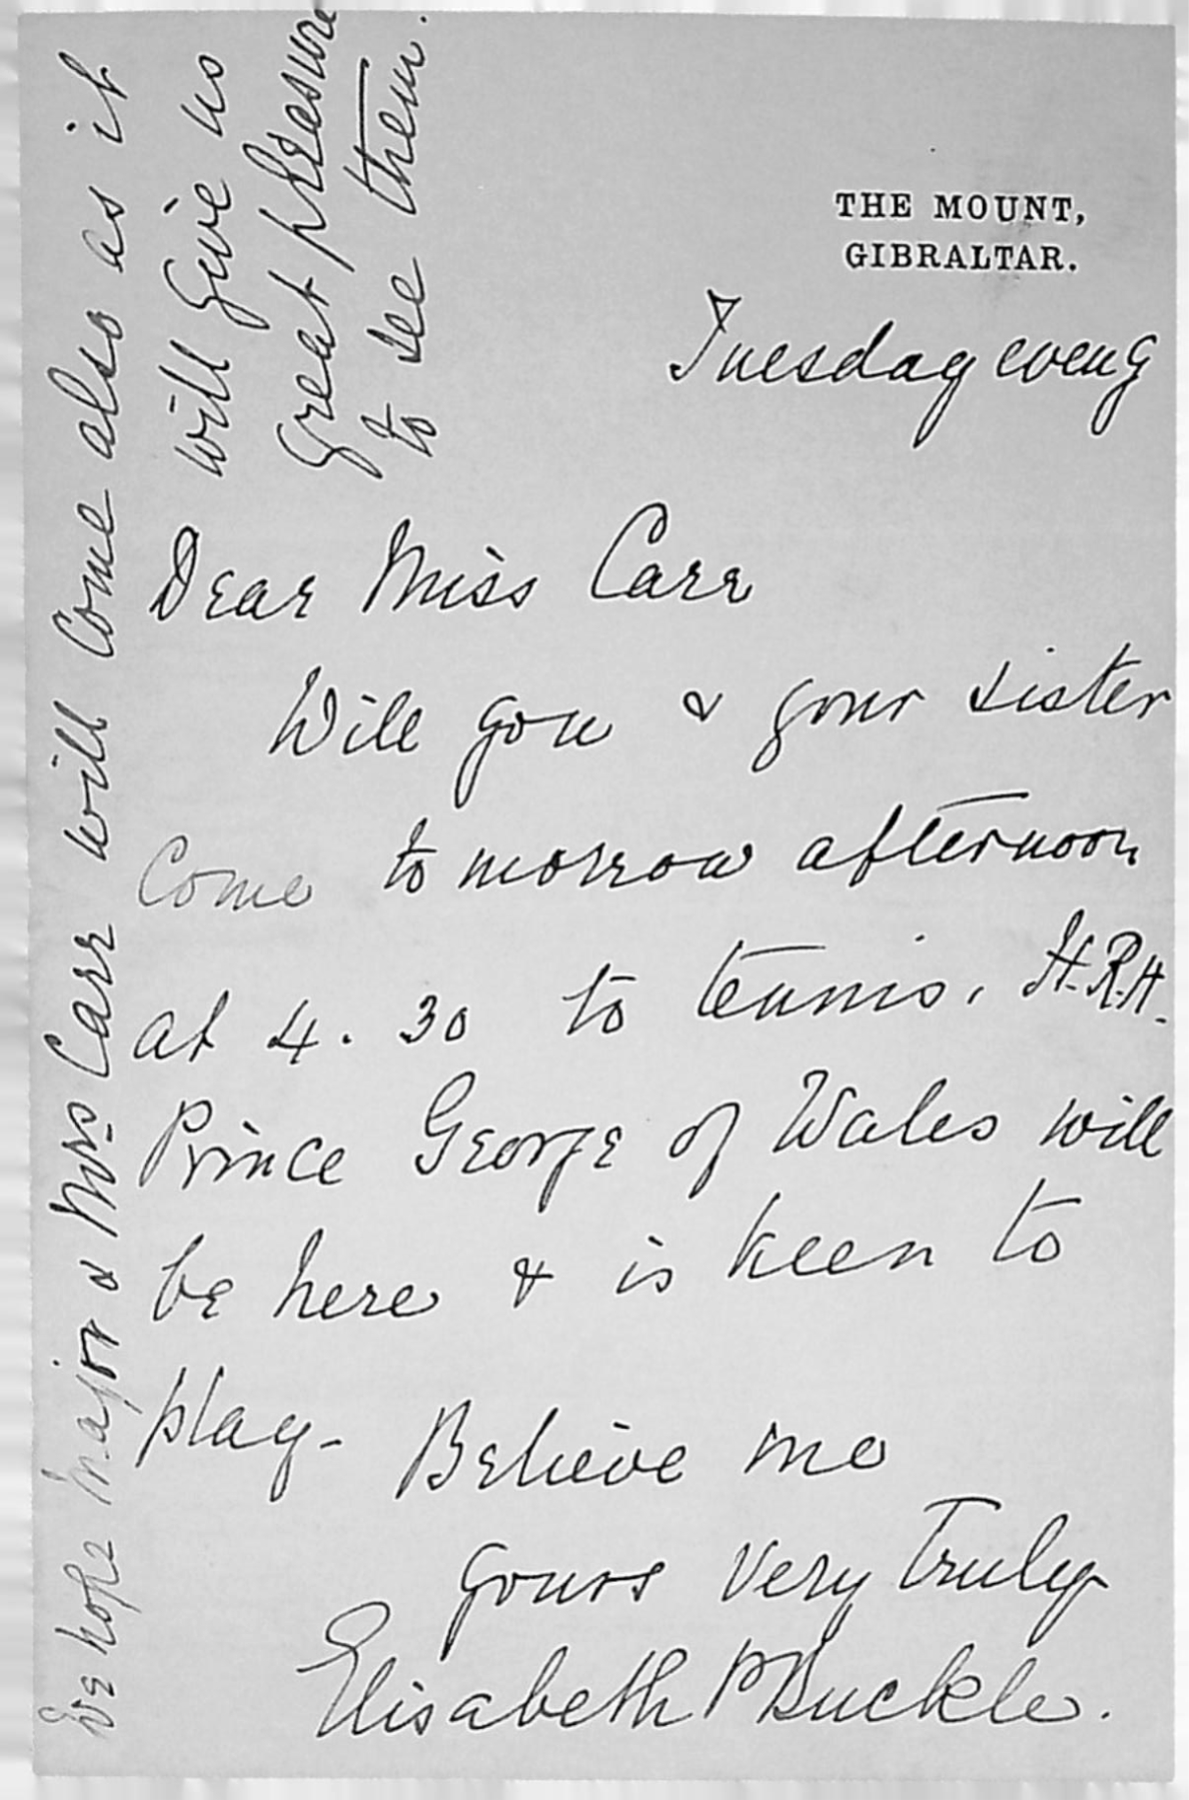 THE MOUNT,
GIBRALTAR.
Tuesday eveng
Dear Miss Carr
Will you & your sister
come to morrow afternoon
at 4.30 to tennis. H.R.H.
Prince George of Wales will
be here & is keen to
play - Believe me
yours very truly
Elisabeth P Buckle.
We hope Major & Mrs Carr will come also as it
will give us
great pleasure
to see them.